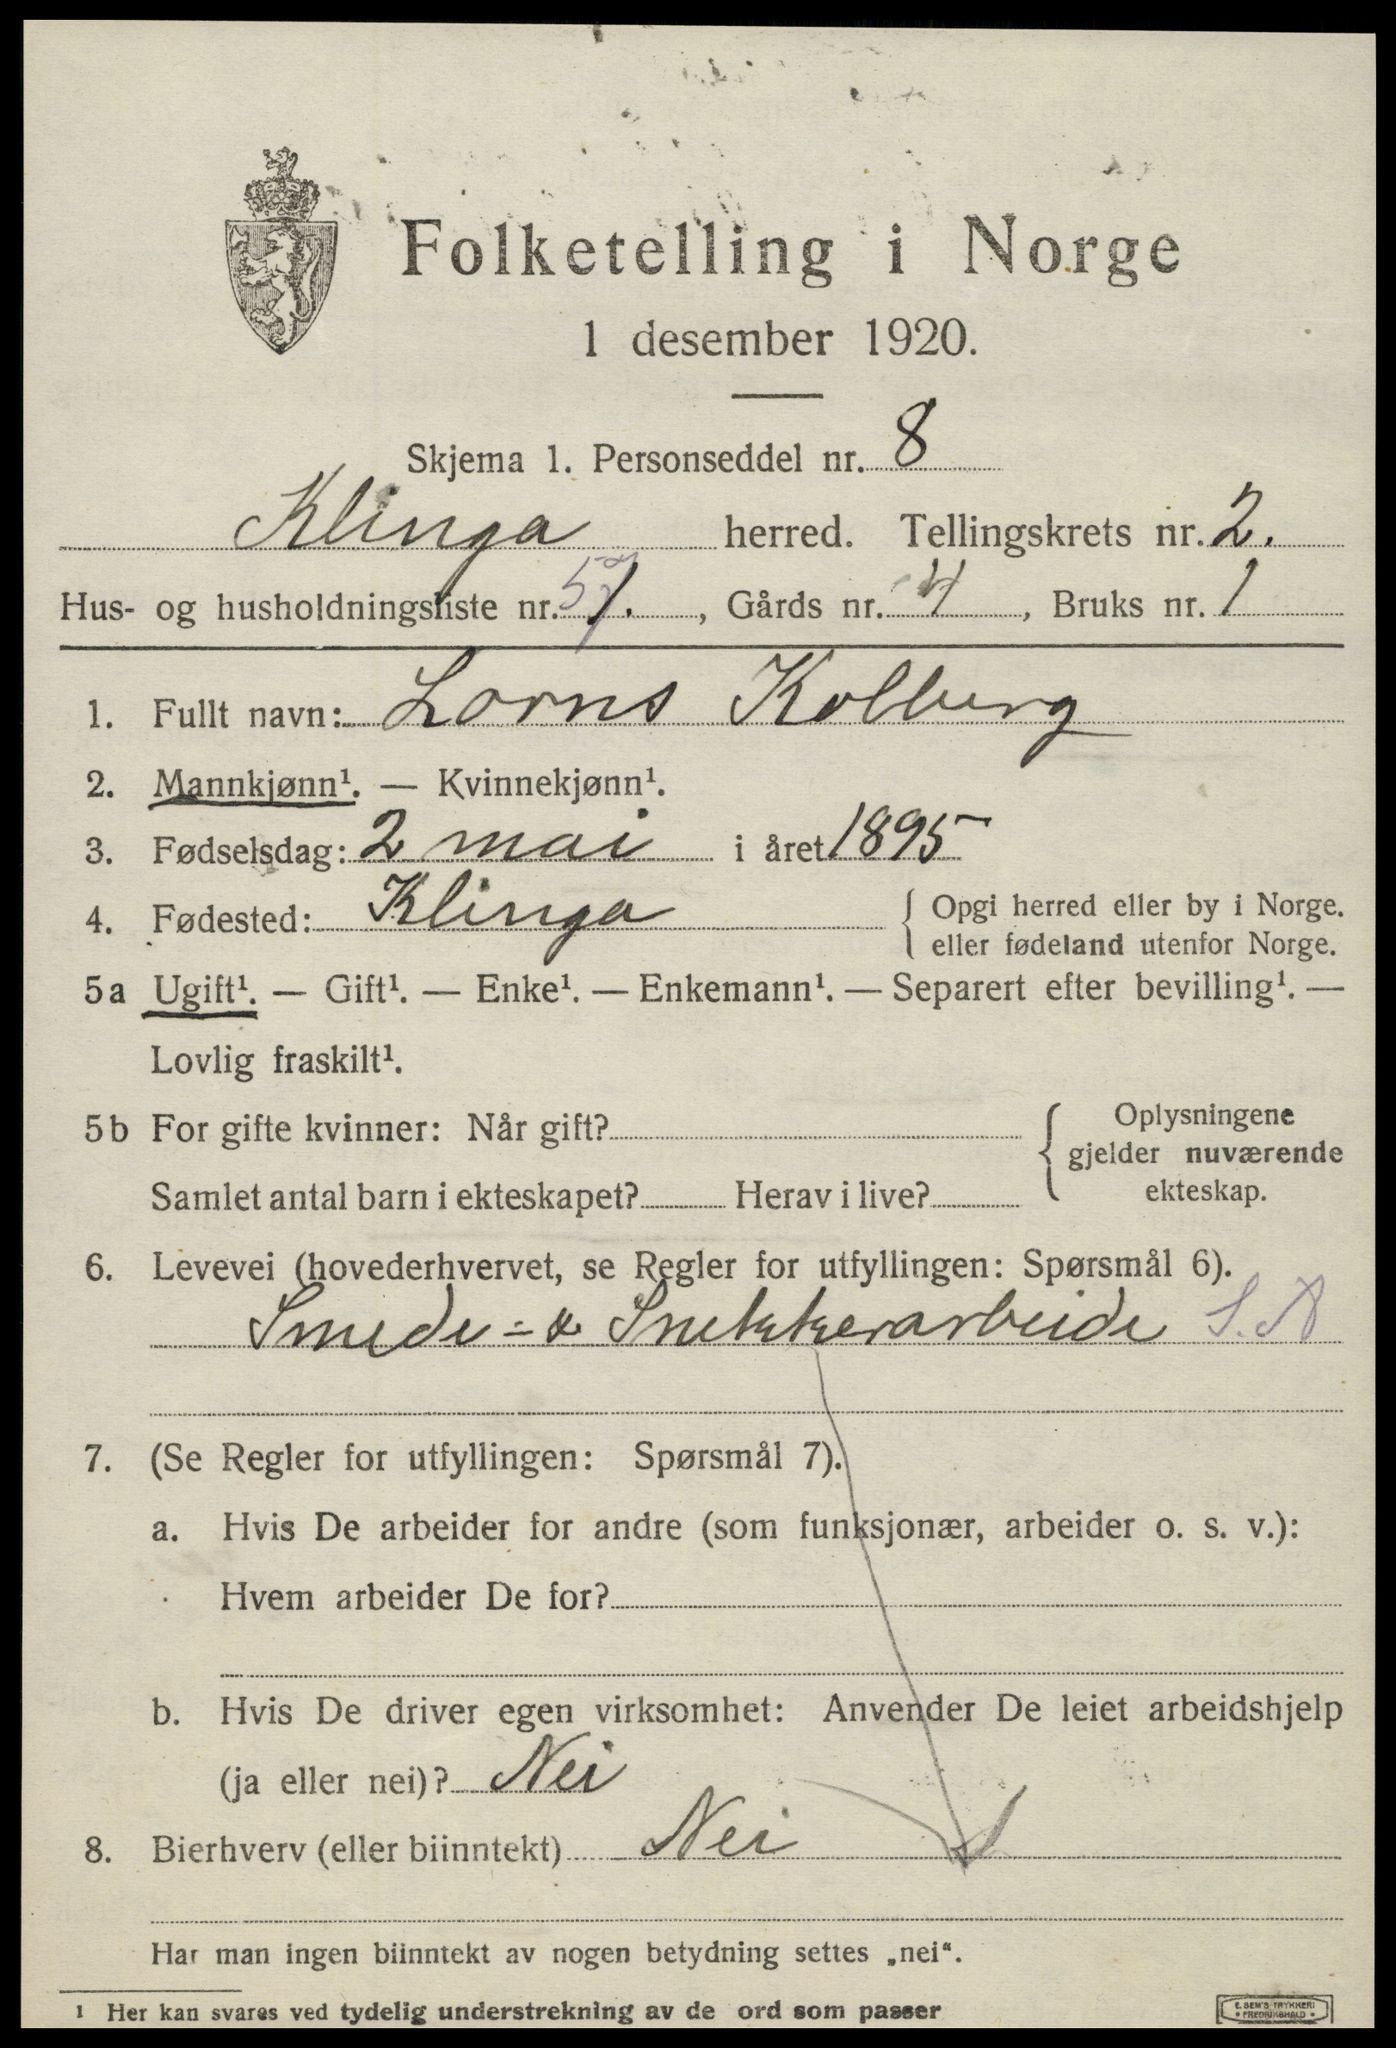 Folketelling i Norge
1 desember 1920.
Skjema 1. Personseddel nr. 8
Klinga herred. Tellingskrets nr. 2.
Hus- og husholdningsliste nr. 57, Gårds nr. 4, Bruks nr. 1
1. Fullt navn: Lorns Kolberg
2. Mannkjønn¹. — Kvinnekjønn¹.
3. Fødselsdag: 2 mai i året 1895
4. Fødested: Klinga { Opgi herred eller by i Norge.
eller fødeland utenfor Norge.
5a Ugift¹. — Gift¹. — Enke¹. — Enkemann¹. — Separert efter bevilling¹. —
Lovlig fraskilt¹.
5b For gifte kvinner: Når gift? { Oplysningene
gjelder nuværende
Samlet antal barn i ekteskapet? Herav i live? ekteskap.
6. Levevei (hovederhvervet, se Regler for utfyllingen: Spørsmål 6).
Smede- & Snekkerarbeide S. A
7. (Se Regler for utfyllingen: Spørsmål 7).
a. Hvis De arbeider for andre (som funksjonær, arbeider o. s. v.):
Hvem arbeider De for?
b. Hvis De driver egen virksomhet: Anvender De leiet arbeidshjelp
(ja eller nei)? Nei
8. Bierhverv (eller biinntekt) Nei
Har man ingen biinntekt av nogen betydning settes „nei“.
¹ Her kan svares ved tydelig understrekning av de ord som passer
E. SEM'S TRYKKERI
FREDRIKSHALD